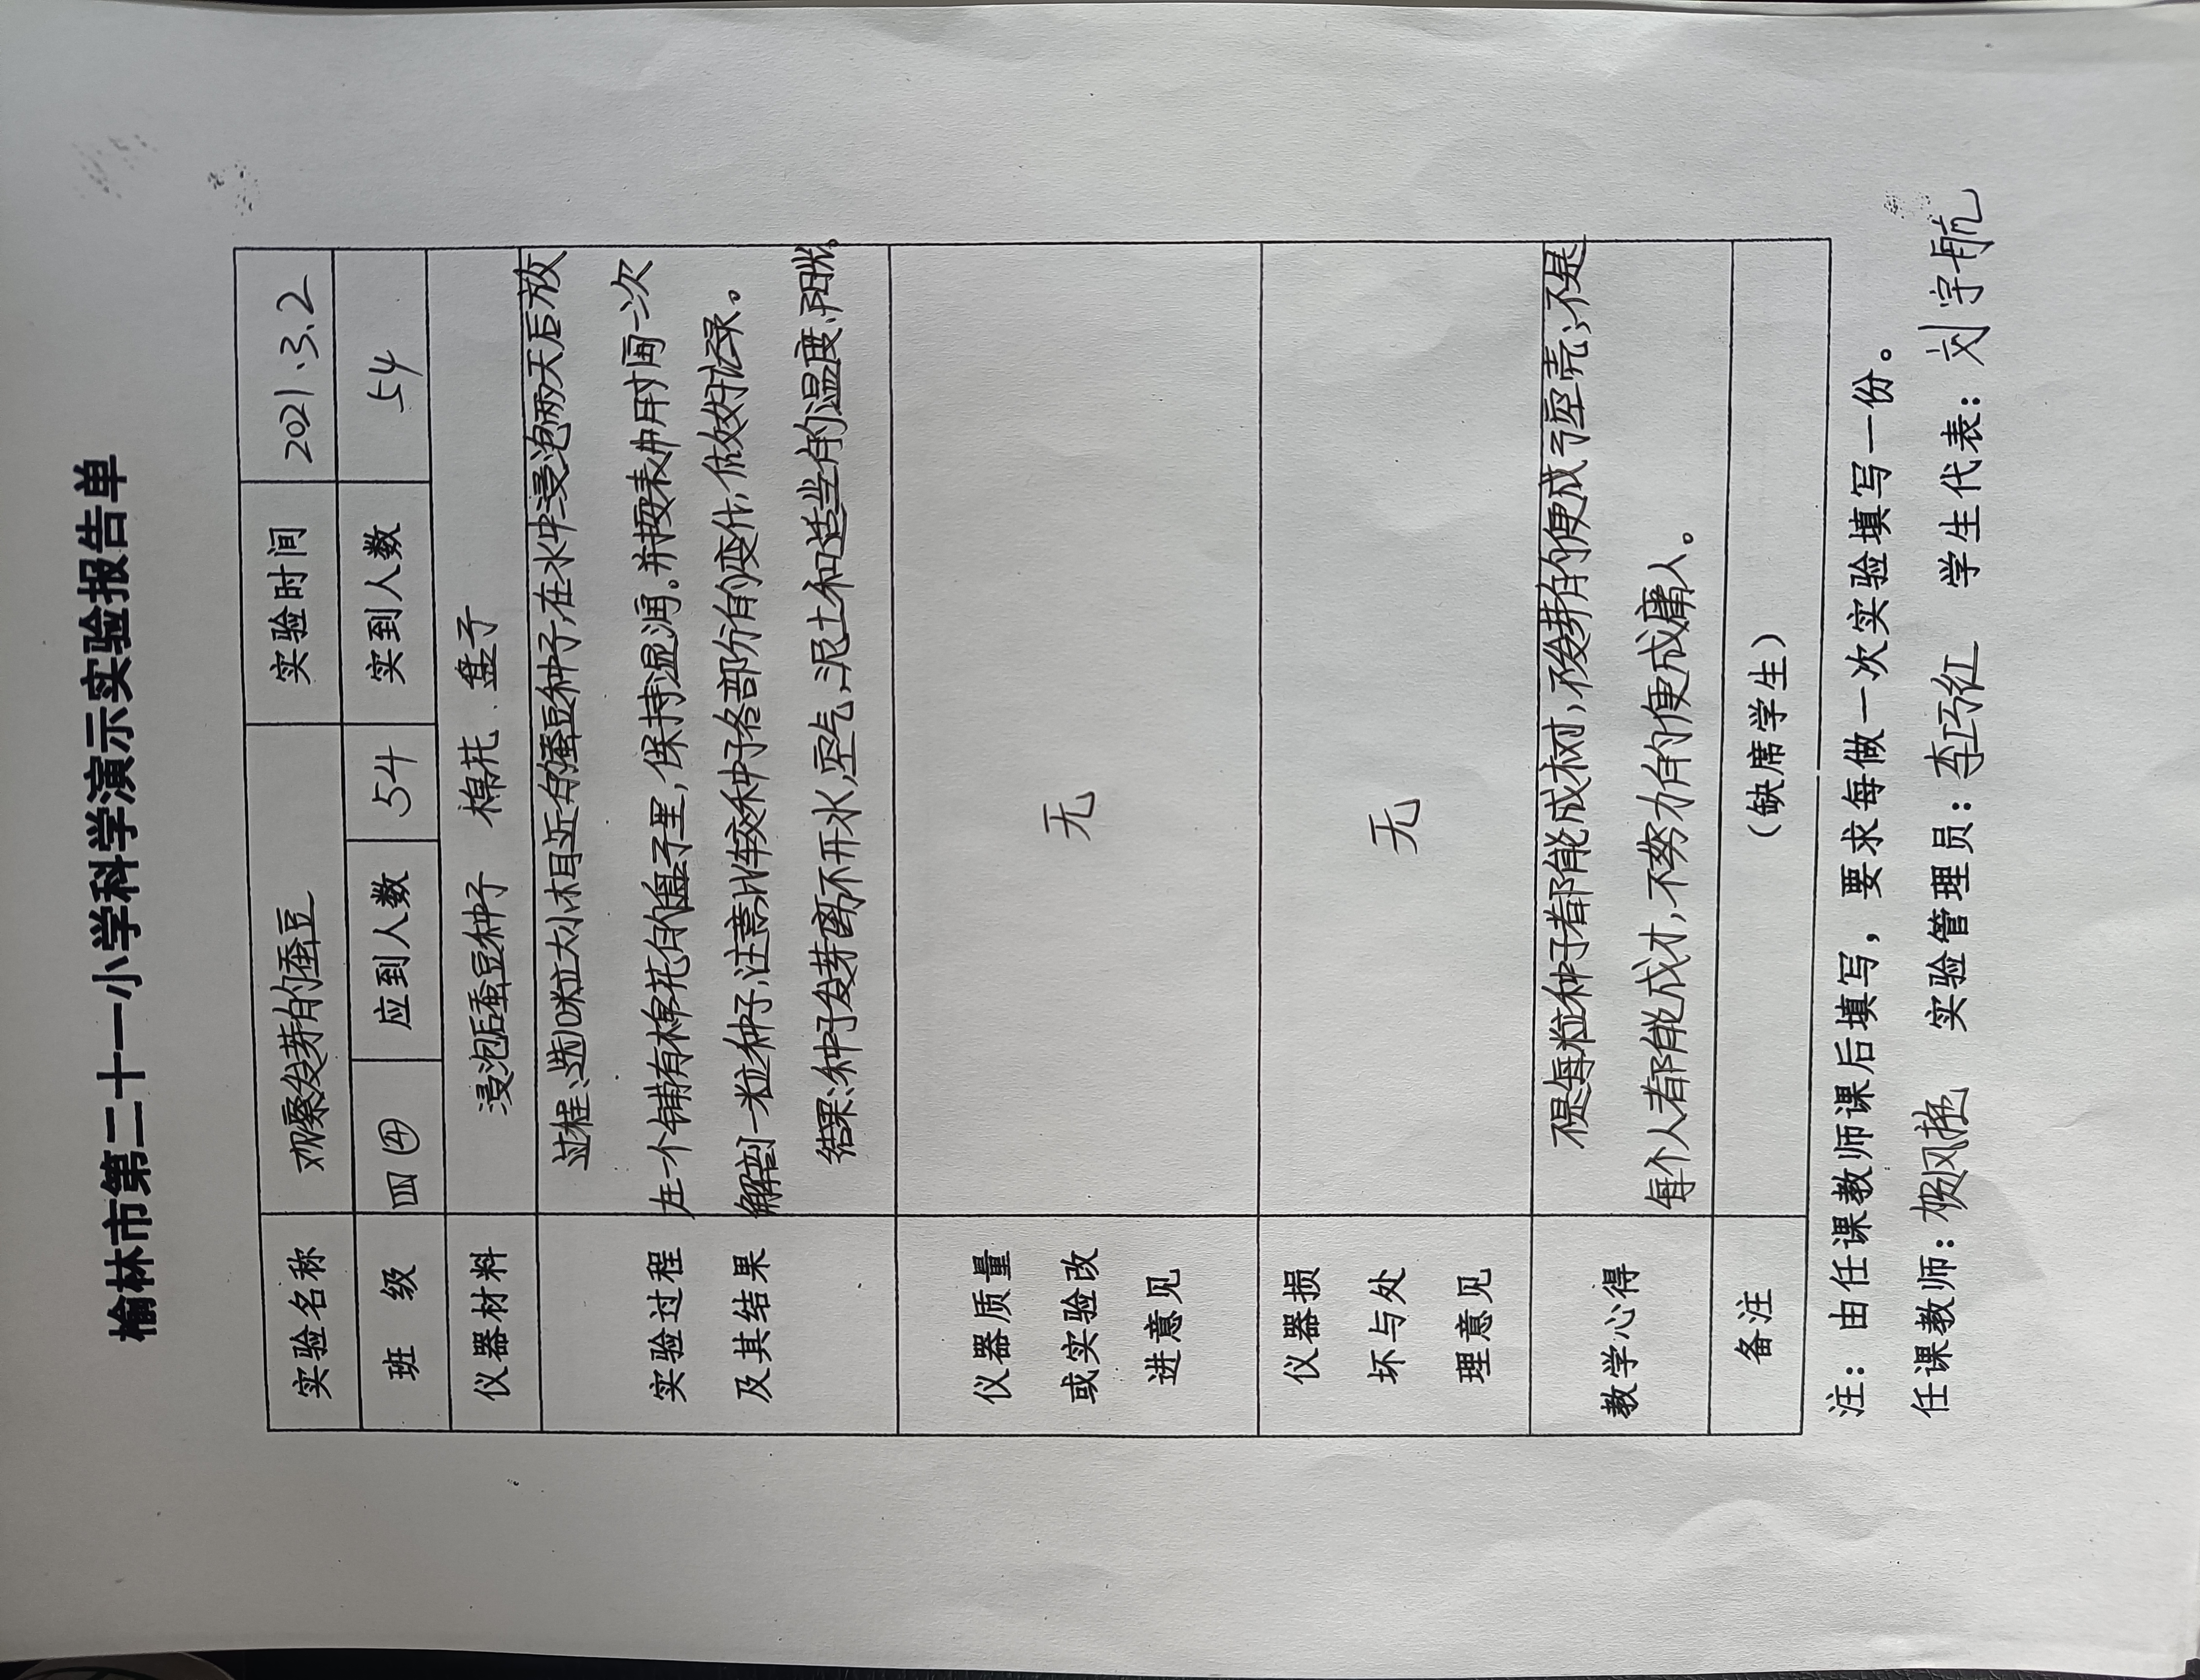 榆林市第二十一小学科学演示实验报告单
实验名称 观察发芽的蚕豆 实验时间 2021.3.2
班 级 四④ 应到人数 54 实到人数 54
仪器材料 浸泡后蚕豆种子 棉花、盘子
过程:选10粒大小相近的蚕豆种子,在水中浸泡两天后放
实验过程 在一个铺有棉花的盘子里,保持湿润。并按表中时间一次
及其结果 解剖一粒种子,注意比较种子各部分的变化,做好记录。
结果:种子发芽离不开水,空气,泥土和适当的温度、阳光。
仪器质量
或实验改 无
进意见
仪器损
坏与处 无
理意见
不是每粒种子都能成树,不发芽的便成了空壳;不是
教学心得
每个人都能成才,不努力的便成庸人。
备注 (缺席学生)
注:由任课教师课后填写,要求每做一次实验填写一份。
任课教师: 实验管理员:李巧红 学生代表:刘宇航